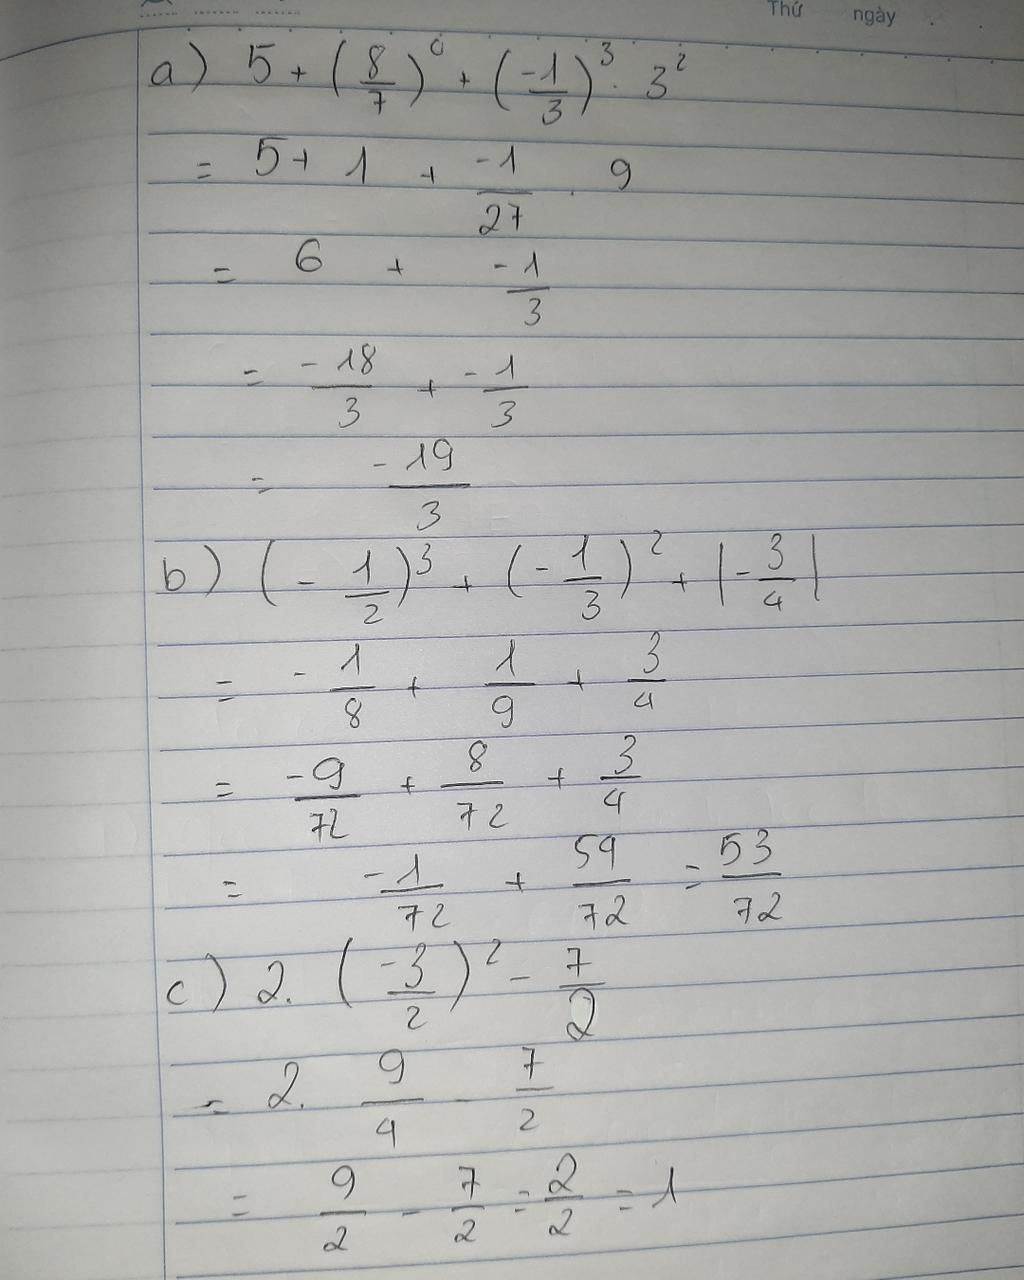 Thứ ngày
a) 5 + (8/7)^0 + (-1/3)^3 . 3^2
= 5 + 1 + -1/27 . 9
= 6 + -1/3
= -18/3 + -1/3
= -19/3
b) (-1/2)^3 + (-1/3)^2 + |-3/4|
= -1/8 + 1/9 + 3/4
= -9/72 + 8/72 + 3/4
= -1/72 + 59/72 = 53/72
c) 2. (-3/2)^2 - 7/2
= 2. 9/4 - 7/2
= 9/2 - 7/2 = 2/2 = 1